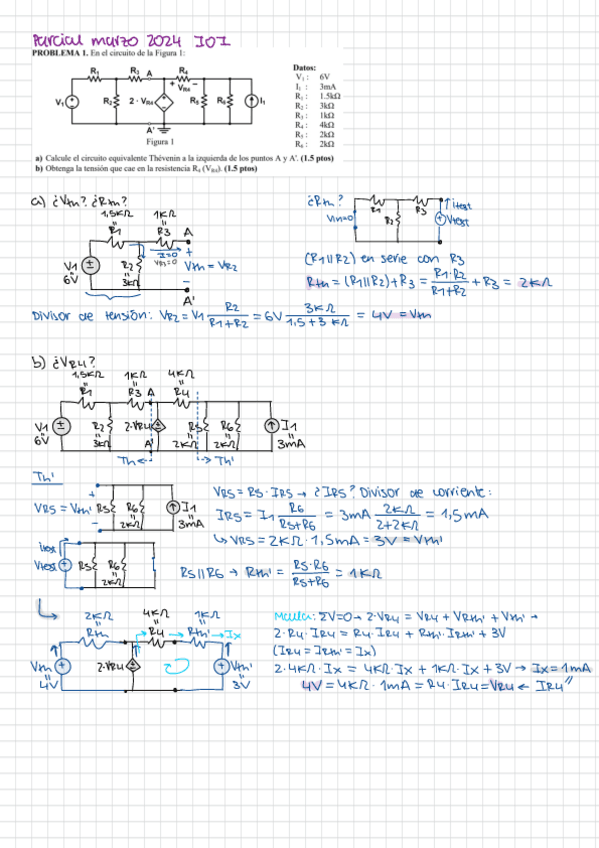 Parcial marzo 2024 IOI
PROBLEMA 1. En el circuito de la Figura 1:
R₁ R₃ A R₄
+ V_R4 -
V₁ R₂ 2 · V_R4 R₅ R₆ I₁
A'
Figura 1
Datos:
V₁ : 6V
I₁ : 3mA
R₁ : 1.5kΩ
R₂ : 3kΩ
R₃ : 1kΩ
R₄ : 4kΩ
R₅ : 2kΩ
R₆ : 2kΩ
a) Calcule el circuito equivalente Thévenin a la izquierda de los puntos A y A'. (1.5 ptos)
b) Obtenga la tensión que cae en la resistencia R₄ (V_R4). (1.5 ptos)
a) ¿Vth? ¿Rth?
1,5KΩ 1KΩ
R1 R3 A
I=0
VR3=0
+
V1 6V
R2 3KΩ
Vth = VR2
-
A'
¿Rth?
R1 R3 Itest
Vin=0 R2 Vtest
(R1||R2) en serie con R3
Rth = (R1||R2)+R3 = R1·R2 / R1+R2 + R3 = 2KΩ
Divisor de tensión: VR2 = V1 R2 / R1+R2 = 6V 3KΩ / 1,5+3 KΩ = 4V = Vth
b) ¿VR4?
1,5KΩ 1KΩ 4KΩ
R1 R3 A R4
V1 R2 2·VR4 R5 R6 I1
6V 3KΩ A' 2KΩ 2KΩ 3mA
Th ← → Th'
Th'
+
VR5 = Vth' R5 R6 I1
- 2KΩ 3mA
VR5 = R5 · IR5 → ¿IR5? Divisor de corriente:
IR5 = I1 R6 / R5+R6 = 3mA 2KΩ / 2+2KΩ = 1,5mA
↳ VR5 = 2KΩ · 1,5mA = 3V = Vth'
Itest
Vtest R5 R6
2KΩ
R5||R6 → Rth' = R5·R6 / R5+R6 = 1KΩ
2KΩ 4KΩ 1KΩ
Rth R4 Rth' Ix
Vth 2·VR4 Vth'
4V 3V
Malla: ΣV=0 → 2·VR4 = VR4 + VRth' + Vth' →
2·R4·IR4 = R4·IR4 + Rth'·IRth' + 3V
(IR4 = IRth' = Ix)
2·4KΩ·Ix = 4KΩ·Ix + 1KΩ·Ix + 3V → Ix = 1mA
4V = 4KΩ · 1mA = R4·IR4 = VR4 ← IR4"